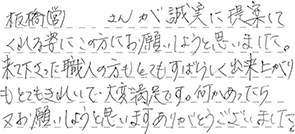 板橋営　　さんが誠実に提案して
くれる姿にこの方にお願いしようと思いました。
来て下さった職人の方もとてもすばらしく出来上がり
もとてもきれいで大変満足です。何かあったら
又お願いしようと思いますありがとうございました。